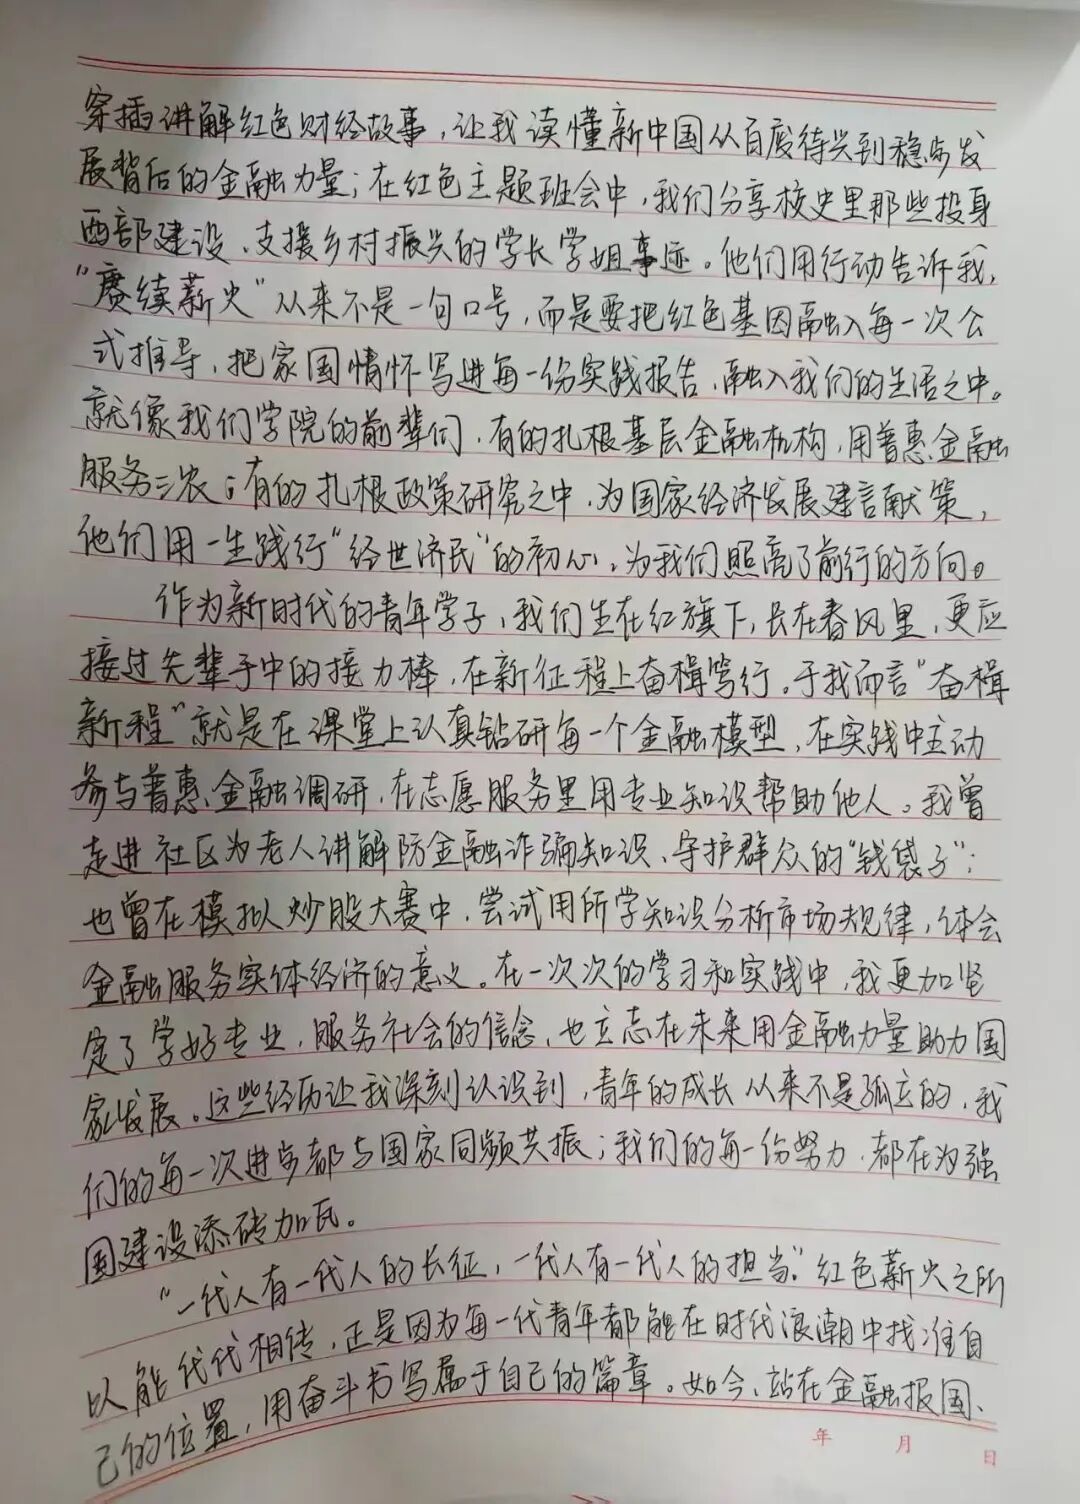 穿插讲解红色财经故事，让我读懂新中国从百废待兴到稳步发
展背后的金融力量；在红色主题班会中，我们分享校史里那些投身
西部建设、支援乡村振兴的学长学姐事迹。他们用行动告诉我，
“赓续薪火”从来不是一句口号，而是要把红色基因融入每一次公
式推导，把家国情怀写进每一份实践报告，融入我们的生活之中。
就像我们学院的前辈们，有的扎根基层金融机构，用普惠金融
服务三农；有的扎根政策研究之中，为国家经济发展建言献策，
他们用一生践行“经世济民”的初心，为我们照亮了前行的方向。
作为新时代的青年学子，我们生在红旗下，长在春风里，更应
接过先辈手中的接力棒，在新征程上奋楫笃行。于我而言“奋楫
新程”就是在课堂上认真钻研每一个金融模型，在实践中主动
参与普惠金融调研，在志愿服务里用专业知识帮助他人。我曾
走进社区为老人讲解防金融诈骗知识、守护群众的“钱袋子”；
也曾在模拟炒股大赛中，尝试用所学知识分析市场规律，体会
金融服务实体经济的意义。在一次次的学习和实践中，我更加坚
定了学好专业，服务社会的信念，也立志在未来用金融力量助力国
家发展。这些经历让我深刻认识到，青年的成长从来不是孤立的，我
们的每一次进步都与国家同频共振；我们的每一份努力，都在为强
国建设添砖加瓦。
“一代人有一代人的长征，一代人有一代人的担当。”红色薪火之所
以能代代相传，正是因为每一代青年都能在时代浪潮中找准自
己的位置，用奋斗书写属于自己的篇章。如今、站在金融报国、
年 月 日